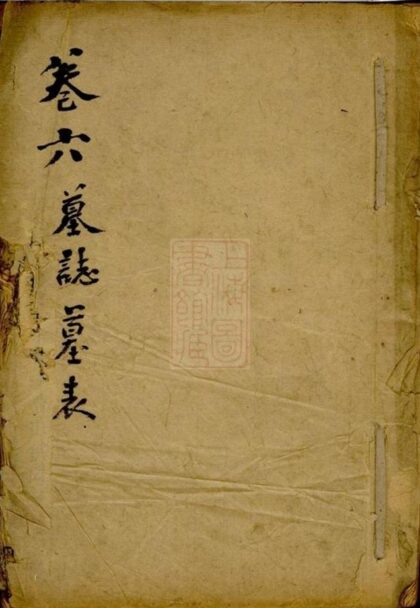 卷六墓誌墓表
上海圖
書館藏